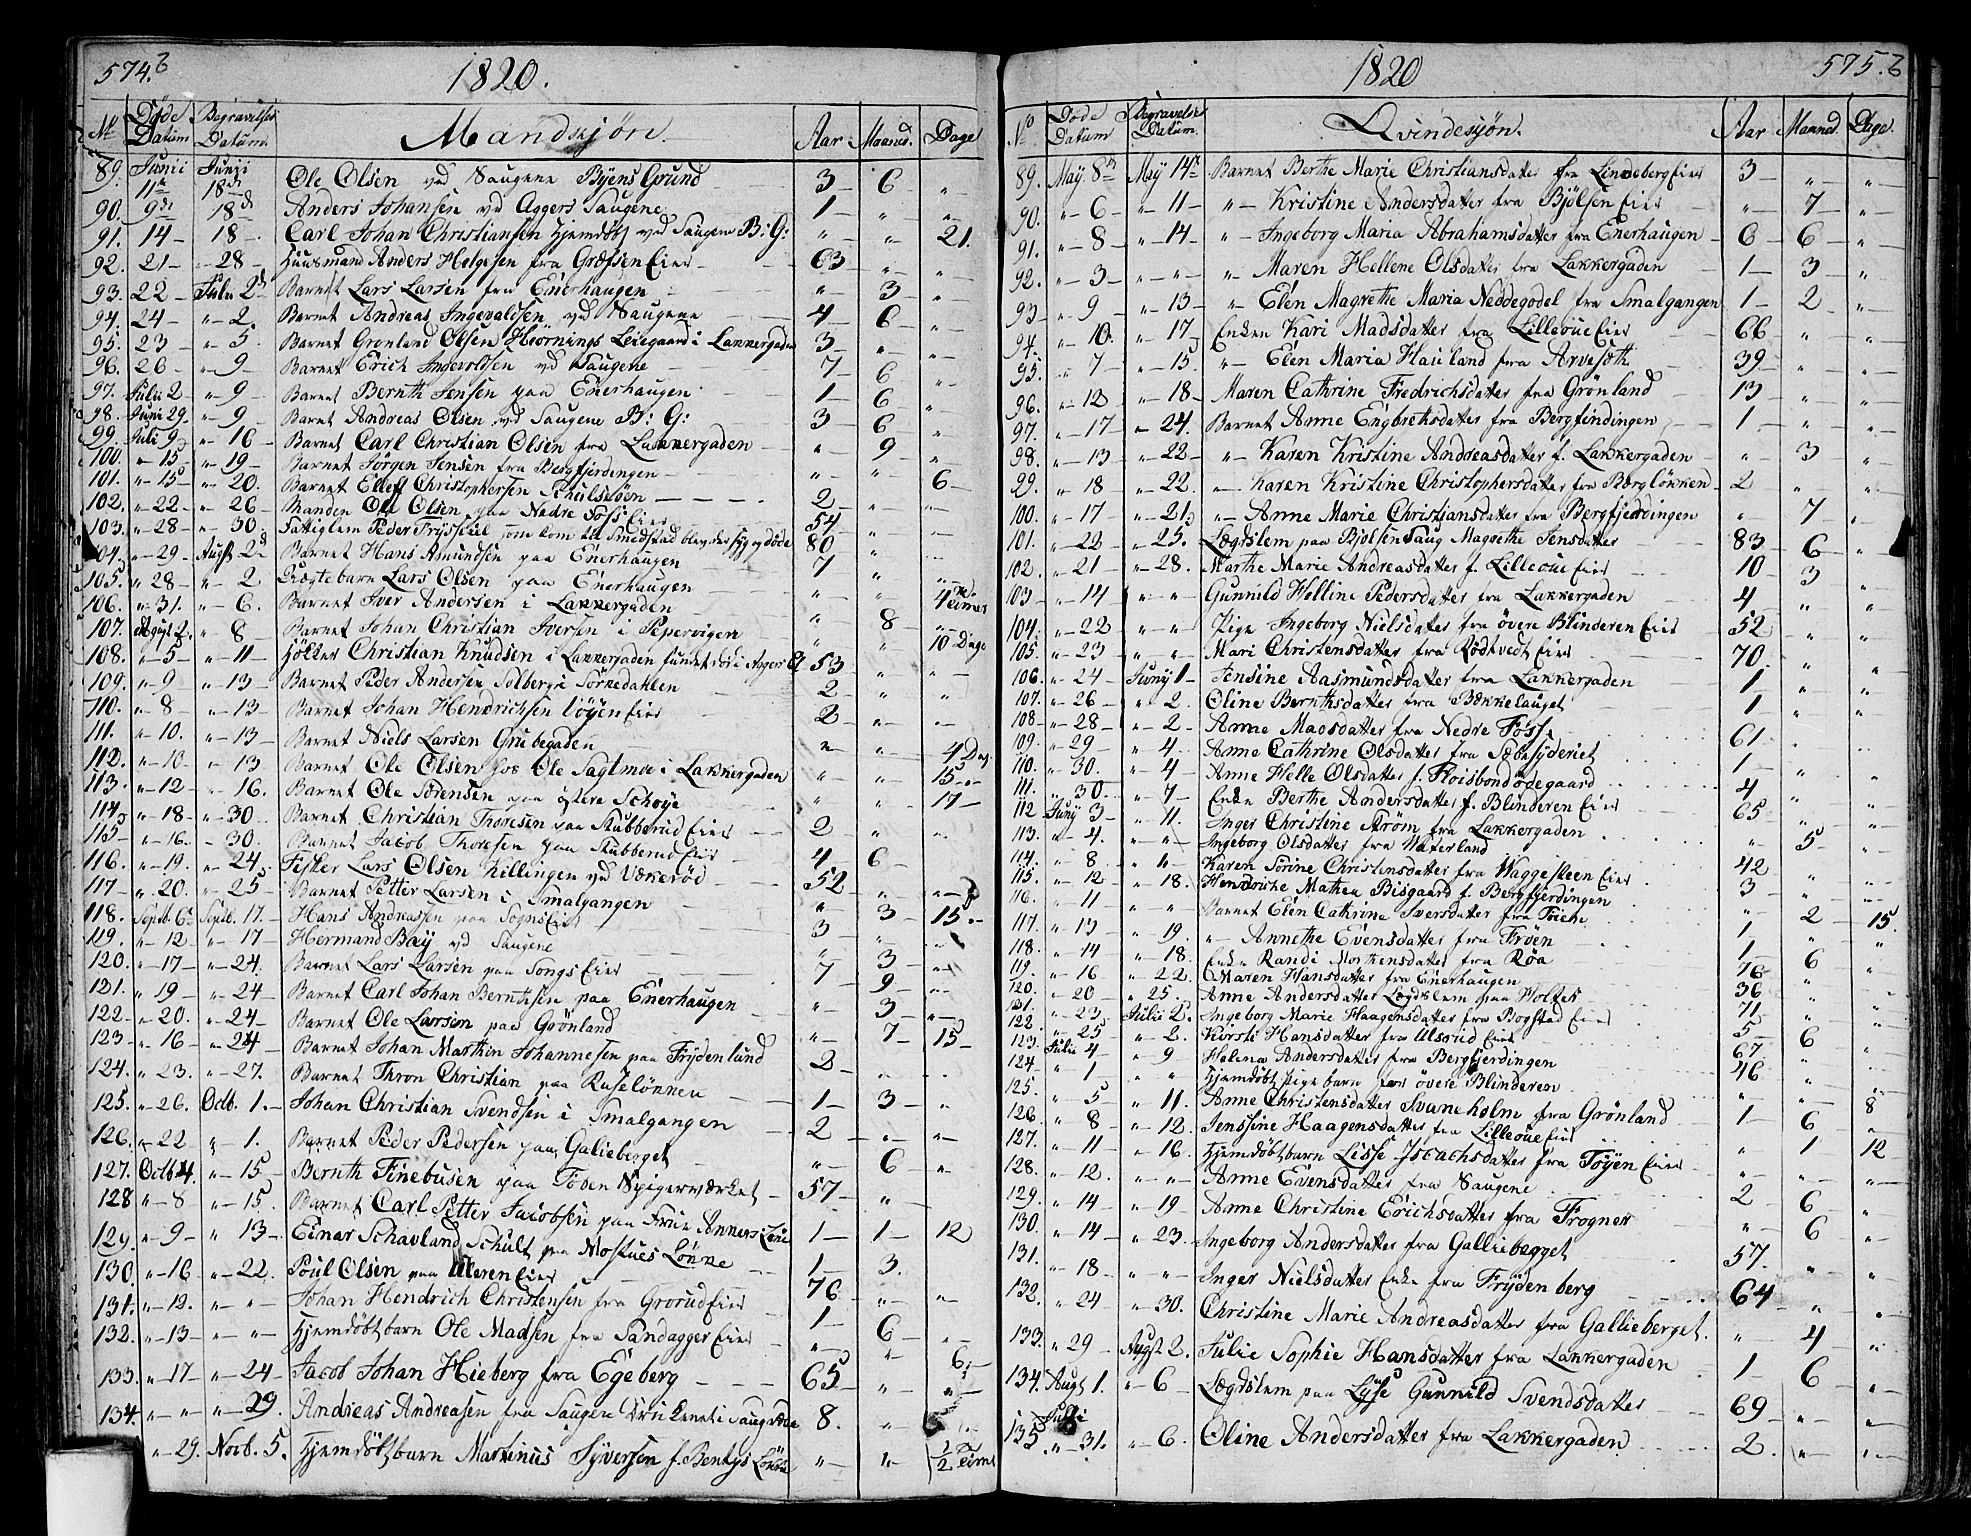 574.b
1820.
No Døde Datum Begravelses Datum Mandskjøn. Aar Maaned. Dage
89. Junii 11te Junii 18de Ole Olsen ved Saugene Byens Grund 3 6 "
90. 9de 18de Anders Johansen vd Aggers Saugene 1 " "
91. 14 18 Carl Johan Christiansen Hjemdøbt ved Saugene B: G: " " 21.
92. 21 28 Huusmand Anders Helgesen fra Græfsen Eier 63 " "
93. 22 Julii 2d Barnet Lars Larsen fra Enerhaugen " 3 "
94. 24 " 2. Barnet Andreas Ingevaldsen vd Saugene 4 6 "
95. 23 " 5. Barnet Grønland Olsen Hiørnings Leiegaard i Lakkergaden 3 " "
96. 26 " 9 Barnet Erich Ingevoldsen vd Saugene 7 6 "
97. Julii 2 " 9 Barnet Bernth Jensen paa Enerhaugen 1 6 "
98. Juni 29. " 9 Barnet Andreas Olsen vd Saugene B: G: 3 6 "
99. Juli 9 " 16 Barnet Carl Christian Olsen fra Lakkergaden " 9 "
100. " 15 " 19 Barnet Jørgen Jensen fra Bergfjerdingen " " 6
101. " 15 " 20. Barnet Ellef Christophersen Schulsløen 2 " "
102. " 22 " 26 Manden Ole Olsen paa Nedre Foss Eier 54 " "
103. " 28 " 30. Fattiglem Peder Trysseiel som kom til Smedstad blev der syg og døde 80 " "
104. " 29. Augst 2d Barnet Hans Asmundsen paa Enerhaugen 7 " "
105. " 28 " 2 Barn Lars Olsen paa Enerhaugen " " 4 Timer
106. " 31. " 6. Barnet Iver Andersen i Lakkergaden " 8 "
107. August 2. " 8 Barnet Johan Christian Iversen i Pepervigen " " 10 Dage
108. " 5 " 11 Christian Knudsen i Lakkergaden funden død i Aggers E 53 " "
109. " 9 " 13 Barnet Peder Andersen Solberg i Sørkedahlen 2 " "
110. " 8 " 13 Barnet Johan Hendrichsen Løyen Eier 2 " "
111. " 10. " 13 Barnet Niels Larsen Grubegaden " " 4 Dag
112. " 10 " 13 Barnet Ole Olsen hos Ole Sagtmoe i Lakkergaden " " 15
113. " 12 " 16. Barnet Ole Sørensen paa østere Schøye " " 17
114. " 18 " 30 Barnet Christian Thoresen paa Stubberud Eier 2 " "
115. " 16. " 30. Barnet Jacob Thoresen paa Stubberud Eier 4 6
116. " 19 " 24. Lars Olsen Killingen vd Vækerød 52 " "
117 " 20. " 25 Barnet Petter Larsen i Smalgangen " 3 15
118. Septb. 6te Septb. 17. Hans Andreasen paa Sogns Eier 3 " "
119. " 12 " 17 Hermand Bay vd Saugene " 3 "
120. " 17 " 24. Barnet Lars Larsen paa Songs Eier 7 9 "
121. " 19 " 24 Barnet Carl Johan Berntsen paa Enerhaugen " 3 "
122 " 20. " 24 Barnet Ole Larsen paa Grønland " 7 15
123 " 16 " 24 Barnet Johan Marthin Johannesen paa Frydenlund 2 " "
124. " 23. " 27. Barnet Thron Christian paa Ruseløkken 1 3 "
125. " 26. Octb. 1. Johan Christian Svendsen i Smalgangen 2 " "
126. " 22 " 1. Barnet Peder Pedersen paa Galieberget " 6 "
127. Octb 4. " 15 Bernth Finebusen paa Foden Spigerværket 57 "
128 " 8 " 15. Barnet Carl Petter Jacobsen paa Frue Ankers Løkke 1 1 12
129. " 9 " 13. Einar Schavland Schult paa Mostues Løkke 1 3.
130. " 16 " 22. Poul Olsen paa Ulleren Eier 76 " "
131. " 12. " " Johan Hendrich Christensen fra Grorud Eier 1 6 "
132. " 13 " " Hjemdøbtbarn Ole Madsen fra Sandagger Eier " " 6
133. " 17 " 24 Jacob Johan Hieberg fra Egeberg 65 " "
134. " " " 29. Andreas Andreasen fra Saugene 8. "
" 29. Novb. 5. Hjemdøbtbarn Martinus Syversen f. Bentys Løkke " " 1/2 Time
575.b
1820
No Døde Datum Begravelse Datum Qvindesjøn. Aar Maaned. Dage.
89. May 8de May 14te Barnet Berthe Marie Christiansdatter fra Lindeberg Eier 3 " "
90. " 6 " 11 " Kristine Andersdatter fra Bjølsen Eier " 7 "
91. " 8 " 14 " Ingeborg Maria Abrahamsdatter fra Enerhaugen 6 6 "
92. " 3 " " " Maren Hellene Olsdatter fra Lakkergaden 1 3 "
93 " 9 " 13 " Elen Magrethe Maria Neddegodel fra Smalgangen 1 2 "
94. " 10. " 17 Enken Kari Madsdatter fra Lilleøue Eier 66 " "
95. " 7 " 15 " Elen Maria Hauland fra Arvesøth 39 " "
96. " 12 " 18 Maren Cathrine Fredrichsdatter fra Grønland 13 " "
97. " 17 " 24. Barnet Anne Engbrethsdatter fra Bergfindingen 1 " "
98. " 13 " 22 " Karen Kristine Andreasdatter f. Lakkergaden " 3 "
99. " 18 " 22. " Karen Kristine Christophersdatter fra Bergløkken 2 " "
100. " 17 " 21 " Anne Marie Christiansdatter fra Bergfjerdingen " 7 "
101. " 22 " 25. Lægdslem paa Bjølsen Saug Magrethe Jensdatter 83 6 "
102. " 21 " 28. Marthe Marie Andreasdatter f. Lilleøue Eier 10 3 "
103 " 14 " " Gunnild Helline Pedersdatter fra Lakkergaden 4 " "
104. " 22 " " Pige Ingeborg Nielsdatter fra øvere Blinderen Eier 52 " "
105 " 23 " " Mari Christensdatter fra Rødtvedt Eier 70. " "
106. " 24 Juny 1 Jensine Aasmundsdatter fra Lakkergaden 1 " "
107. " 26 " 2 Oline Bernthsdatter fra Bækkelauget 1 " "
108 " 28 " 2. Anne Madsdatter fra Nedre Foss 61 " "
109. " 29 " 4 Anne Cathrine Olsdatter fra Søbesyderiet 1 " "
110. " 30. " 4 Anne Helle Olsdatter f. Floisbondødegaard 4 " "
111. " 30. " 7 Enke Berthe Andersdatter f. Blinderen Eier 65 " "
112 Juny 3 " 11. Inger Christine Strøm fra Lakkergaden " 5 "
113. " 4. " " Ingeborg Olsdatter fra Vaterland 42 " "
114. " 8 " " Karen Sørine Christensdatter fra Waggesteen Eier 3 " "
115. " 12 " 18. Hendriche Mathea Bisgaard f. Bergfjerdingen " 2 15
116. " 11 " " Barnet Elen Cathrina Iversdatter fra 1 " "
117. " 13 " 19. " Annethe Evensdatter fra Frøen 1 6 "
118. " 14 " 18. Enke Randi Mortensdatter fra Røa 76 " "
119. " 16 " 22. Maren Hansdatter fra Enerhaugen 36 " "
120. " 20 " 25. Anne Andersdatter Lægdslem paa Wolfes 71 " "
121. " 23. Julii 2. Ingeborg Marie Haagensdatter fra Bogstad Eier 5 6 "
122. " 25 " 2. Kirsti Hansdatter fra Ulsrud Eier 67 " "
123. Julie 4 " 9 Helena Andersdatter fra Bergfjerdingen 46 " "
124 " 1 " " Hjemdøbt pige barn fra øvere Blinderen " " 8
125. " 5 " 11. Anne Christensdatter Svaneholm fra Grønland 1 6 "
126. " 8 " 12. Jenssine Haagensdatter fra Lilleøue Eier " 1 12
127. " 11 " 16. Hjemdøbtbarn Lisse Isaachsdatter fra Tøyen Eier " " "
128. " 12. " Anne Evensdatter fra Saugene 2 6 "
129. " 14 " 19 Anne Christine Erichsdatter fra Frogner " 6 "
130. " 14 " 23. Ingeborg Andersdatter fra Galliebegget 57. " "
131. " 18 " " Inger Nielsdatter Enke fra Frydenberg 64 " "
132. " 24 " 30. Christine Marie Andreasdatter fra Gallieberget. " 4 "
133. " 29 Augst 2. Julie Sophie Hansdatter fra Lakkergaden 1 6 "
134. Augt 1. " 6 Lægdslem paa Lysse Gunnild Svendsdatter 69 " "
135 Julii " 31. " 6. Oline Andersdatter fra Lakkergaden 2. " "